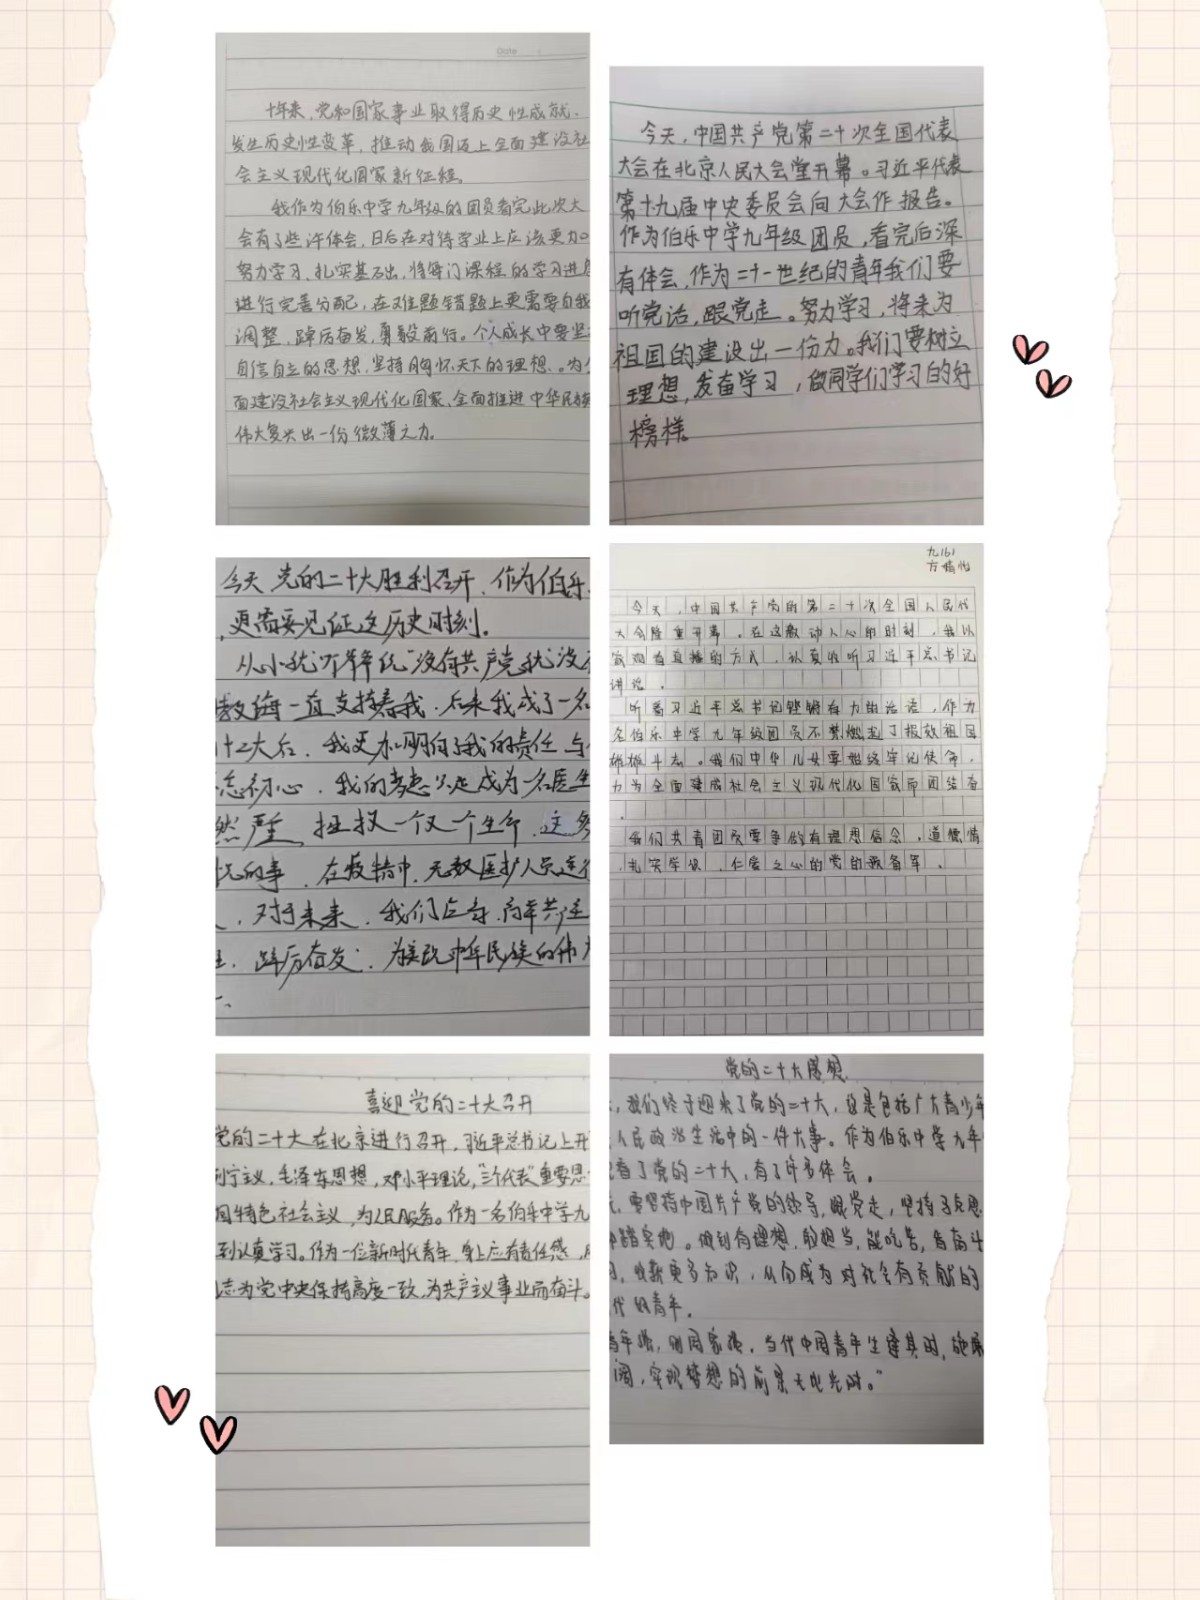 Date
十年来，党和国家事业取得历史性成就、
发生历史性变革，推动我国迈上全面建设社
会主义现代化国家新征程。
我作为伯乐中学九年级的团员看完此次大
会有了些许体会，日后在对待学业上应该更加
努力学习、扎实基础，将每门课程的学习进度
进行完善分配，在难题错题上更需要自我
调整，踔厉奋发，勇毅前行。个人成长中要坚
自信自立的思想，坚持胸怀天下的理想、。为全
面建设社会主义现代化国家、全面推进中华民族
伟大复兴出一份微薄之力。
今天，中国共产党第二十次全国代表
大会在北京人民大会堂开幕。习近平代表
第十九届中央委员会向大会作报告。
作为伯乐中学九年级团员，看完后深
有体会，作为二十一世纪的青年我们要
听党话，跟党走。努力学习，将来为
祖国的建设出一份力。我们要树立
理想，发奋学习，做同学们学习的好
榜样。
今天党的二十大胜利召开，作为伯乐
，更需要见证这历史时刻。
从小就听爷爷说"没有共产党就没有
教诲一直支持着我，后来我成了一名
十二大后，我更加明白了我的责任与
忘初心，我的考虑以是成为一名医生
然严，拯救一个又一个生命，这多
的事，在疫情中，无数医护人员逆行
，对于未来，我们应奇
，踔厉奋发，为实现中华民族的伟大
九(6)
今天，中国共产党的第二十次全国人民代
大会隆重开幕。在这激动人心的时刻，我以
观看直播的方式，认真收听习近平总书记
讲话。
听着习近平总书记铿锵有力的话语，作为
名伯乐中学九年级团员不禁燃起了报效祖国
雄雄斗志。我们中华儿女要始终牢记使命，
力为全面建成社会主义现代化国家而团结奋
。
我们共青团员要争做有理想信念，道德情
，扎实学识，仁爱之心的党的预备军。
喜迎党的二十大召开
党的二十大在北京进行召开，习近平总书记上开
列宁主义，毛泽东思想，邓小平理论，"三个代表"重要思
国特色社会主义，为人民服务。作为一名伯乐中学九
到认真学习。作为一位新时代青年，身上应有责任感，
志为党中央保持高度一致，为共产主义事业而奋斗。
党的二十大感想
，我们终于迎来了党的二十大，这是包括广大青少年
人民政治生活中的一件大事。作为伯乐中学九年
看了党的二十大，有了许多体会。
，要坚持中国共产党的领导，跟党走，坚持马克思
脚踏实地。做到有理想，敢担当，能吃苦，肯奋斗
，收获更多知识，从而成为对社会有贡献的
代的青年。
青年强，则国家强，当代中国青年生逢其时，施展
阔，实现梦想的前景无比光明。"